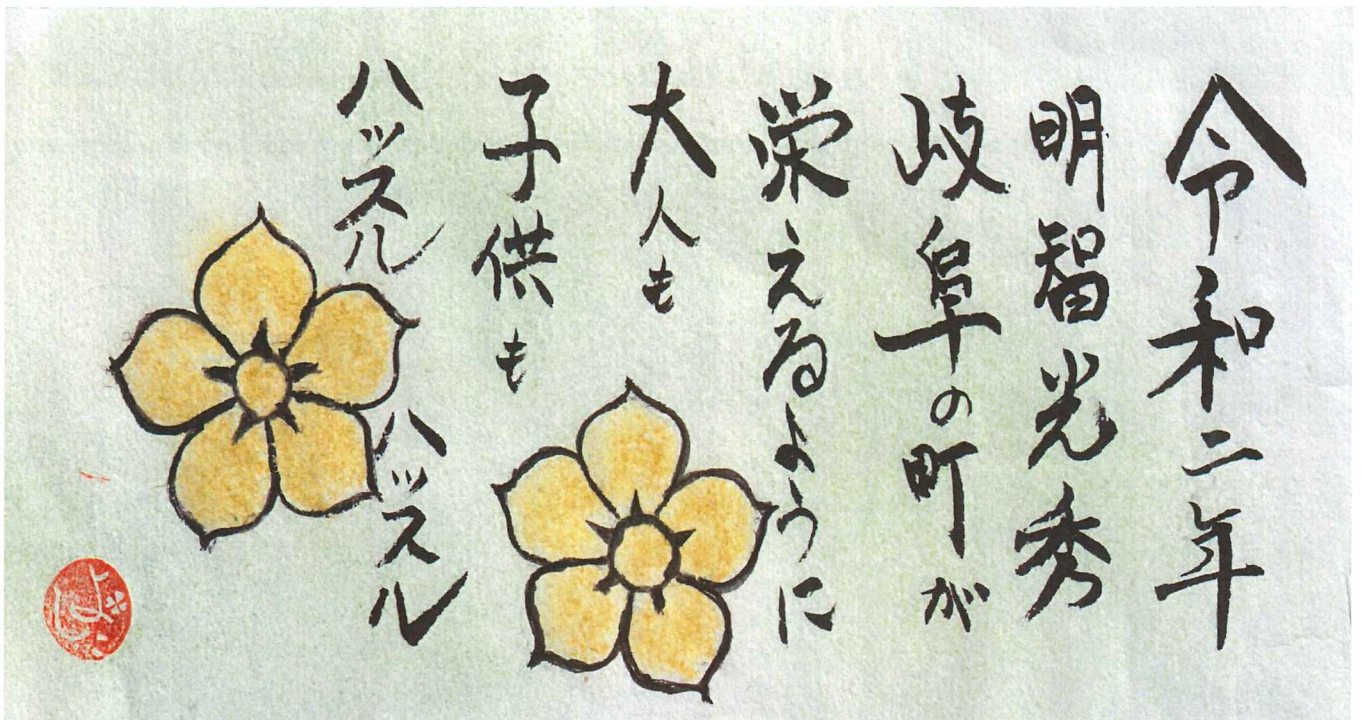 令和二年
明智光秀
岐阜の町が
栄えるように
大人も
子供も
ハッスル
ハッスル